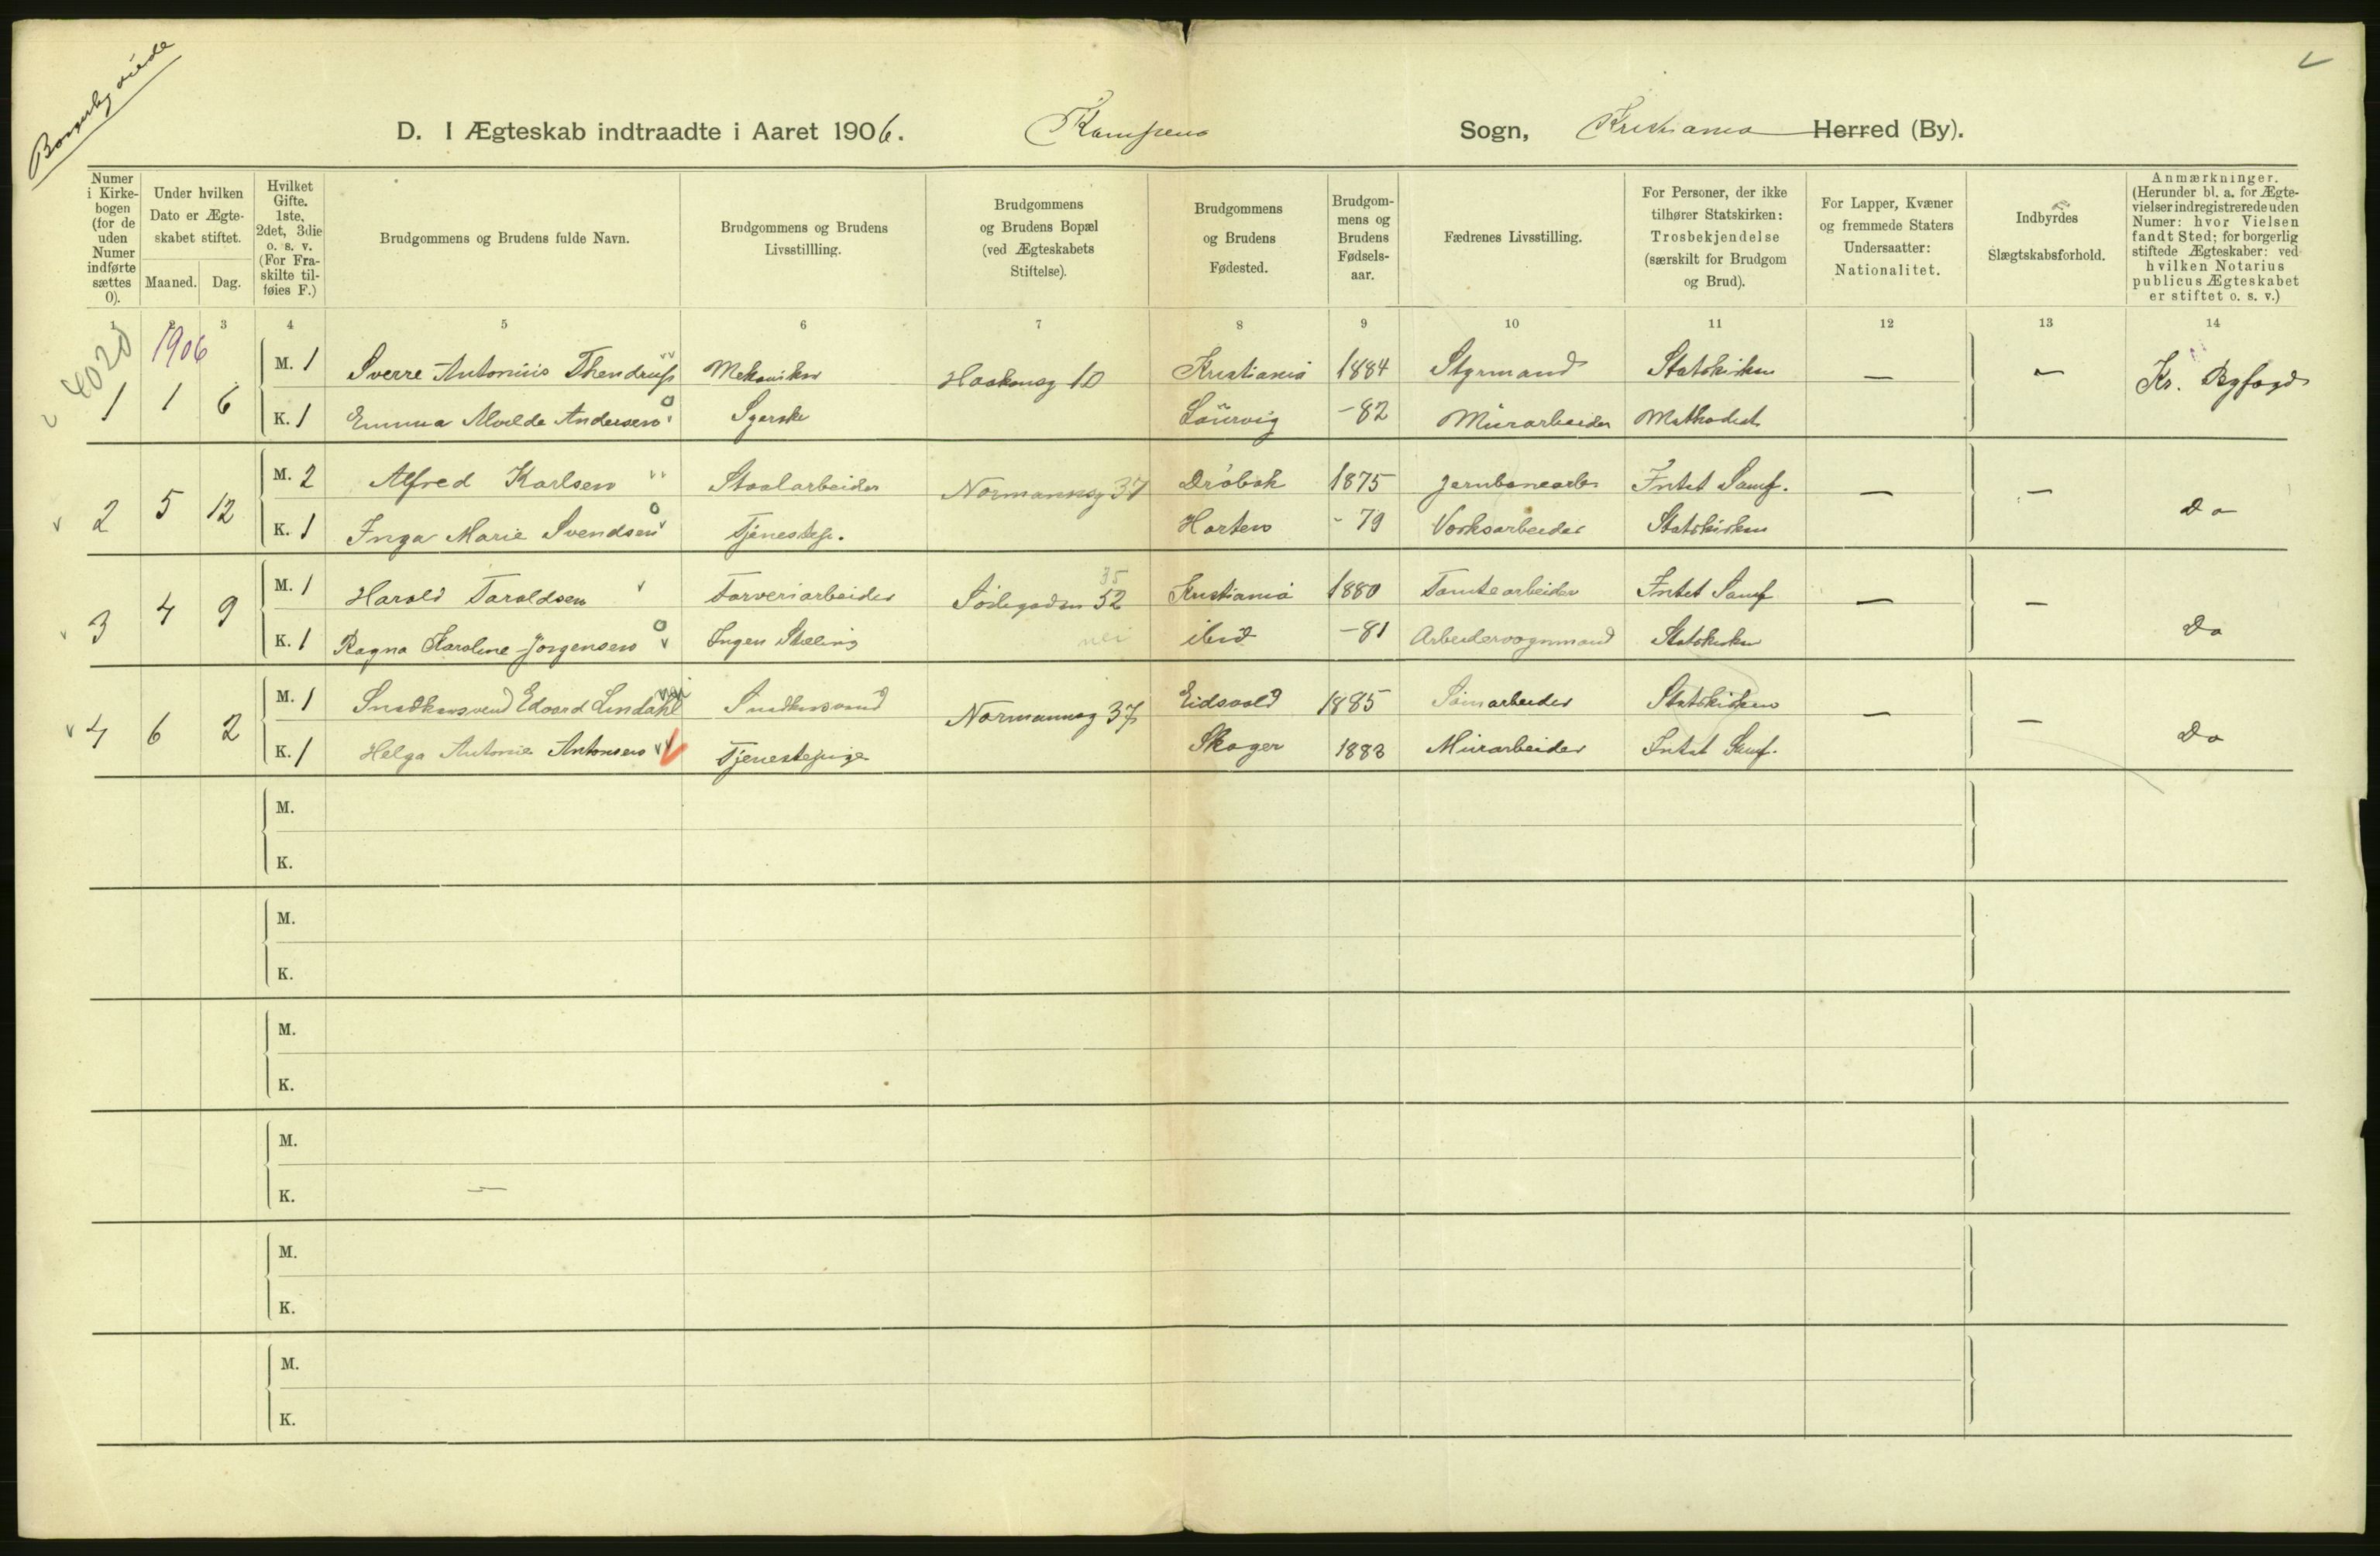 Borgerlig viede
D. I Ægteskab indtraadte i Aaret 1906. Kampens Sogn, Kristiania Herred (By).
Numer i Kirkebogen (for de uden Numer indførte sættes 0).
Under hvilken Dato er Ægteskabet stiftet.
Maaned. Dag.
Hvilket Gifte. 1ste, 2det, 3die o. s. v. (For Fraskilte tilføies F.)
Brudgommens og Brudens fulde Navn.
Brudgommens og Brudens Livsstillling.
Brudgommens og Brudens Bopæl (ved Ægteskabets Stiftelse).
Brudgommens og Brudens Fødested.
Brudgommens og Brudens Fødselsaar.
Fædrenes Livsstilling.
For Personer, der ikke tilhører Statskirken: Trosbekjendelse (særskilt for Brudgom og Brud).
For Lapper, Kvæner og fremmede Staters Undersaatter: Nationalitet.
Indbyrdes Slægtskabsforhold.
Anmærkninger. (Herunder bl. a. for Ægtevielser indregistrerede uden Numer: hvor Vielsen fandt Sted; for borgerlig stiftede Ægteskaber: ved hvilken Notarius publicus Ægteskabet er stiftet o. s. v.)
1 2 3 4 5 6 7 8 9 10 11 12 13 14
4020 1906
1 1 6 M. 1 Sverre Antonius Thendrup Mekaniker Haakonsg 10 Kristiania 1884 Styrmand Statskirken — — Kr. Byfogd
K. 1 Emma Alvilde Andersen Syerske Laurvig -82 Murarbeider Methodist
2 5 12 M. 2 Alfred Karlsen Staalarbeider Normannsg 37 Drøbak 1875 Jernbanearb Intet Samf. — — Do
K. 1 Inga Marie Svendsen Tjenestep. Horten - 79 Værksarbeider Statskirken
3 4 9 M. 1 Harald Taraldsen Farveriarbeider 35 52 Kristiania 1880 Tomtearbeider Intet Samf — — Do
K. 1 Ragna Karoline Jørgensen Ingen Stilling nei ibid -81 Arbeidsvognmand Statskirken
4 6 2 M. 1 Snedkersvend Edvard Lindahl Snedkersvend Normannsg 37 Eidsvold 1885 Statskirken — — Do
K. 1 Helga Antonie Antonsen Tjenestepige Skoger 1883 Murarbeider Intet Samf.
M.
K.
M.
K.
M.
K.
M.
K. —
M.
K.
M.
K.